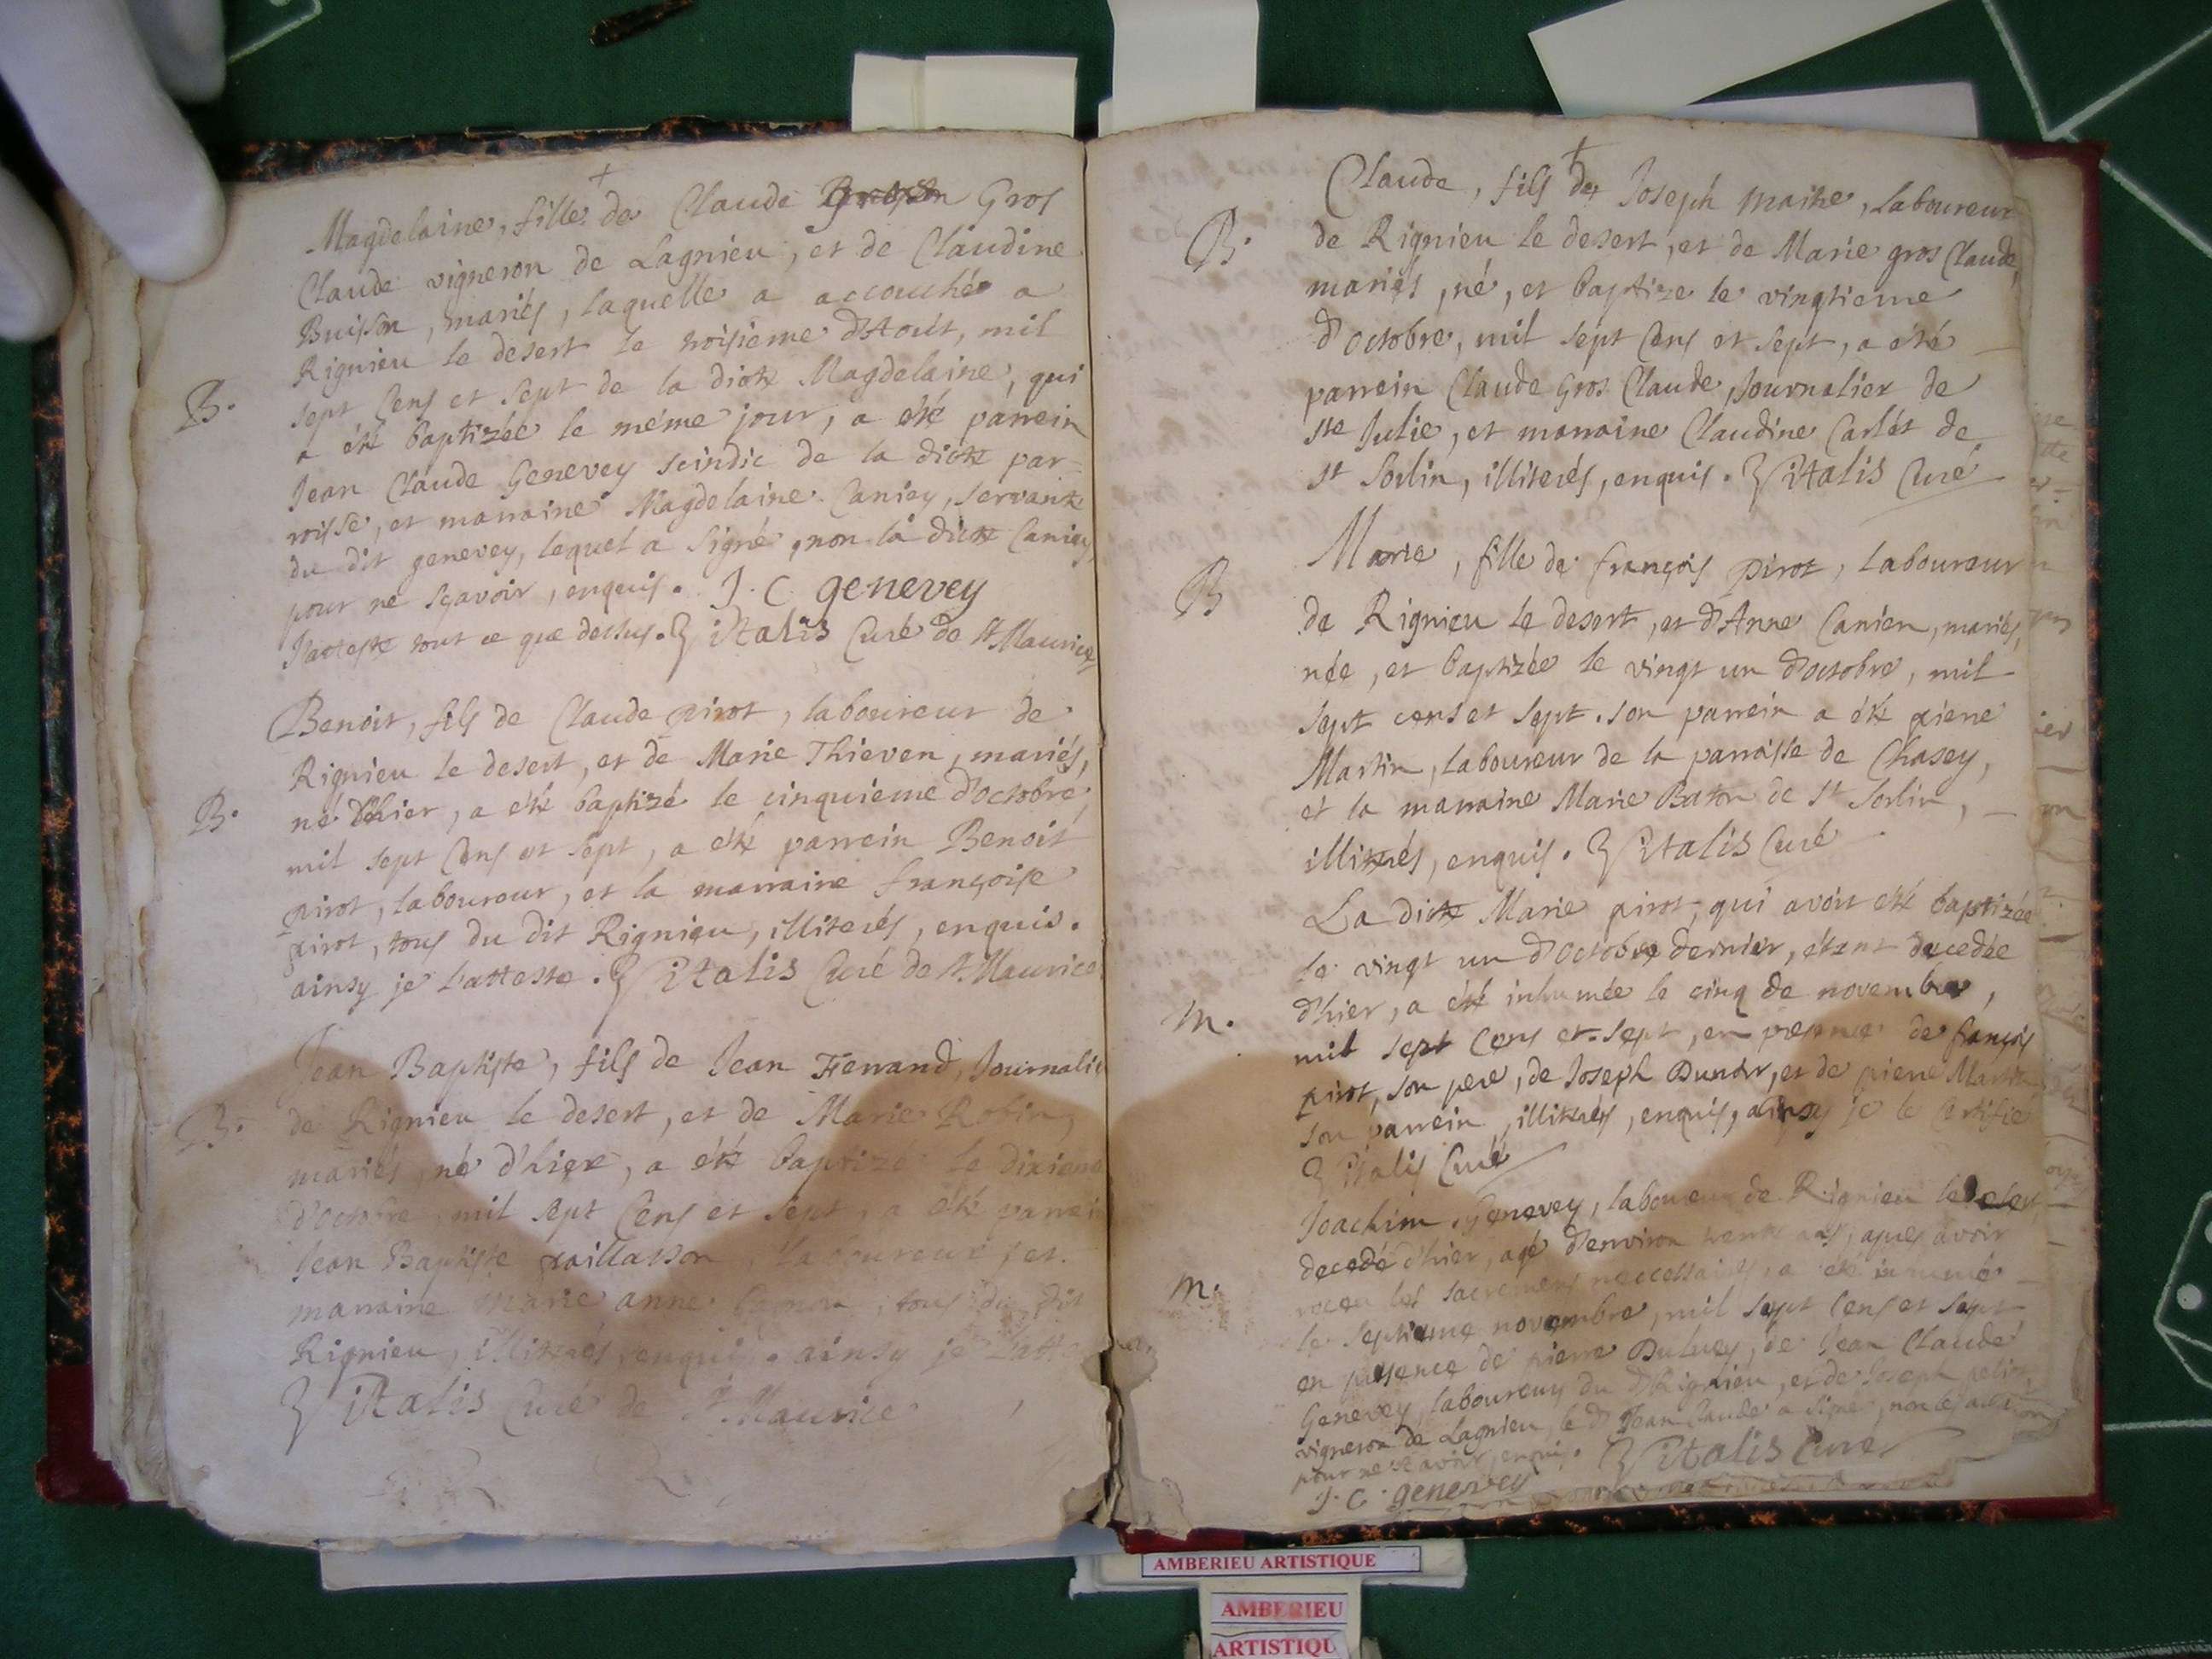 Magdelaine, fille de Claude Gros
Claude vigneron de Lagnieu, et de Claudine
Buisson, mariés, laquelle a accouchée a
Rignieu le desert le troisieme d'Août, mil
B.
sept Cens et sept de la dicte Magdelaine, qui
a été baptizée le méme jour, a été parrein
Jean Claude Genevey scindic de la dicte par=
roisse, et marraine Magdelaine Caniey, servante
du dit genevey, lequel a signé, non la dicte Caniey
pour ne sçavoir, enquis. J. C genevey
J'atteste tout ce que dessus. Vitalis Curé de St Maurice
Benoit, fils de Claude pirot, laboureur de
Rignieu le desert, et de Marie Thieven, mariés,
B.
né d'hier, a été baptizé le cinquieme d'octobre,
mil sept Cens et sept, a été parrein Benoit
pirot, laboureur, et la marraine françoise
pirot, tous du dit Rignieu, illiterés, enquis.
ainsy je l'atteste. Vitalis Curé de St. Maurice
Jean Baptiste, fils de Jean Ferrand, Journalier
B.
de Rignieu le desert, et de Marie Robin,
mariés, né d'hier, a été baptizé le dixieme
d'octobre, mil sept Cens et sept, a été parrein
Jean Baptiste paillasson, laboureur, et
marraine Marie anne tous du dit
Rignieu, illiterés, enquis. ainsy je l'atteste,
Vitalis Curé de St Maurice
Claude, fils de Joseph maire, laboureur
B.
de Rignieu le desert, et de Marie gros Claude,
mariés, né, et baptize le vingtieme
d'octobre, mil sept Cens et sept, a été
parrein Claude Gros Claude, Journalier de
ste Julie, et marraine Claudine Carlét de
st Sorlin, illiterés, enquis. Vitalis Curé
Marie, fille de françois pirot, laboureur
B
de Rignieu le desert, et d'Anne Canien, mariés,
née, et baptizée le vingt un d'octobre, mil
sept cens et sept. son parrein a été pierre
Martin, laboureur de la parroisse de Chasey,
et la marraine Marie Baton de st Sorlin,
illiterés, enquis. Vitalis Curé
La dicte Marie pirot, qui avoit été baptizée
le vingt un d'octobre dernier, étant decedée
m.
d'hier, a été inhumée le cinq de novembre,
mil sept Cens et sept, en presence de françois
pirot, son pere, de Joseph Dunoir, et de pierre Martin
son parrein, illiterés, enquis, ainsy je le Certifie
Vitalis Curé
Joachim Genevey, laboureur de Rignieu le desert
decedé d'hier, agé d'environ trente ans, apres avoir
m.
receu les sacremens neccessaires, a été inhumé
le septieme novembre, mil sept Cens et sept
en presence de pierre Duluey, de Jean Claude
Genevey laboureurs du dt Rignieu, et de Joseph pelin
vigneron de Lagnieu, le dt Jean Claude a signé, non les autres
pour ne sçavoir, enquis. Vitalis Curé
J. C. genevey
AMBERIEU ARTISTIQUE
AMBERIEU
ARTISTIQU